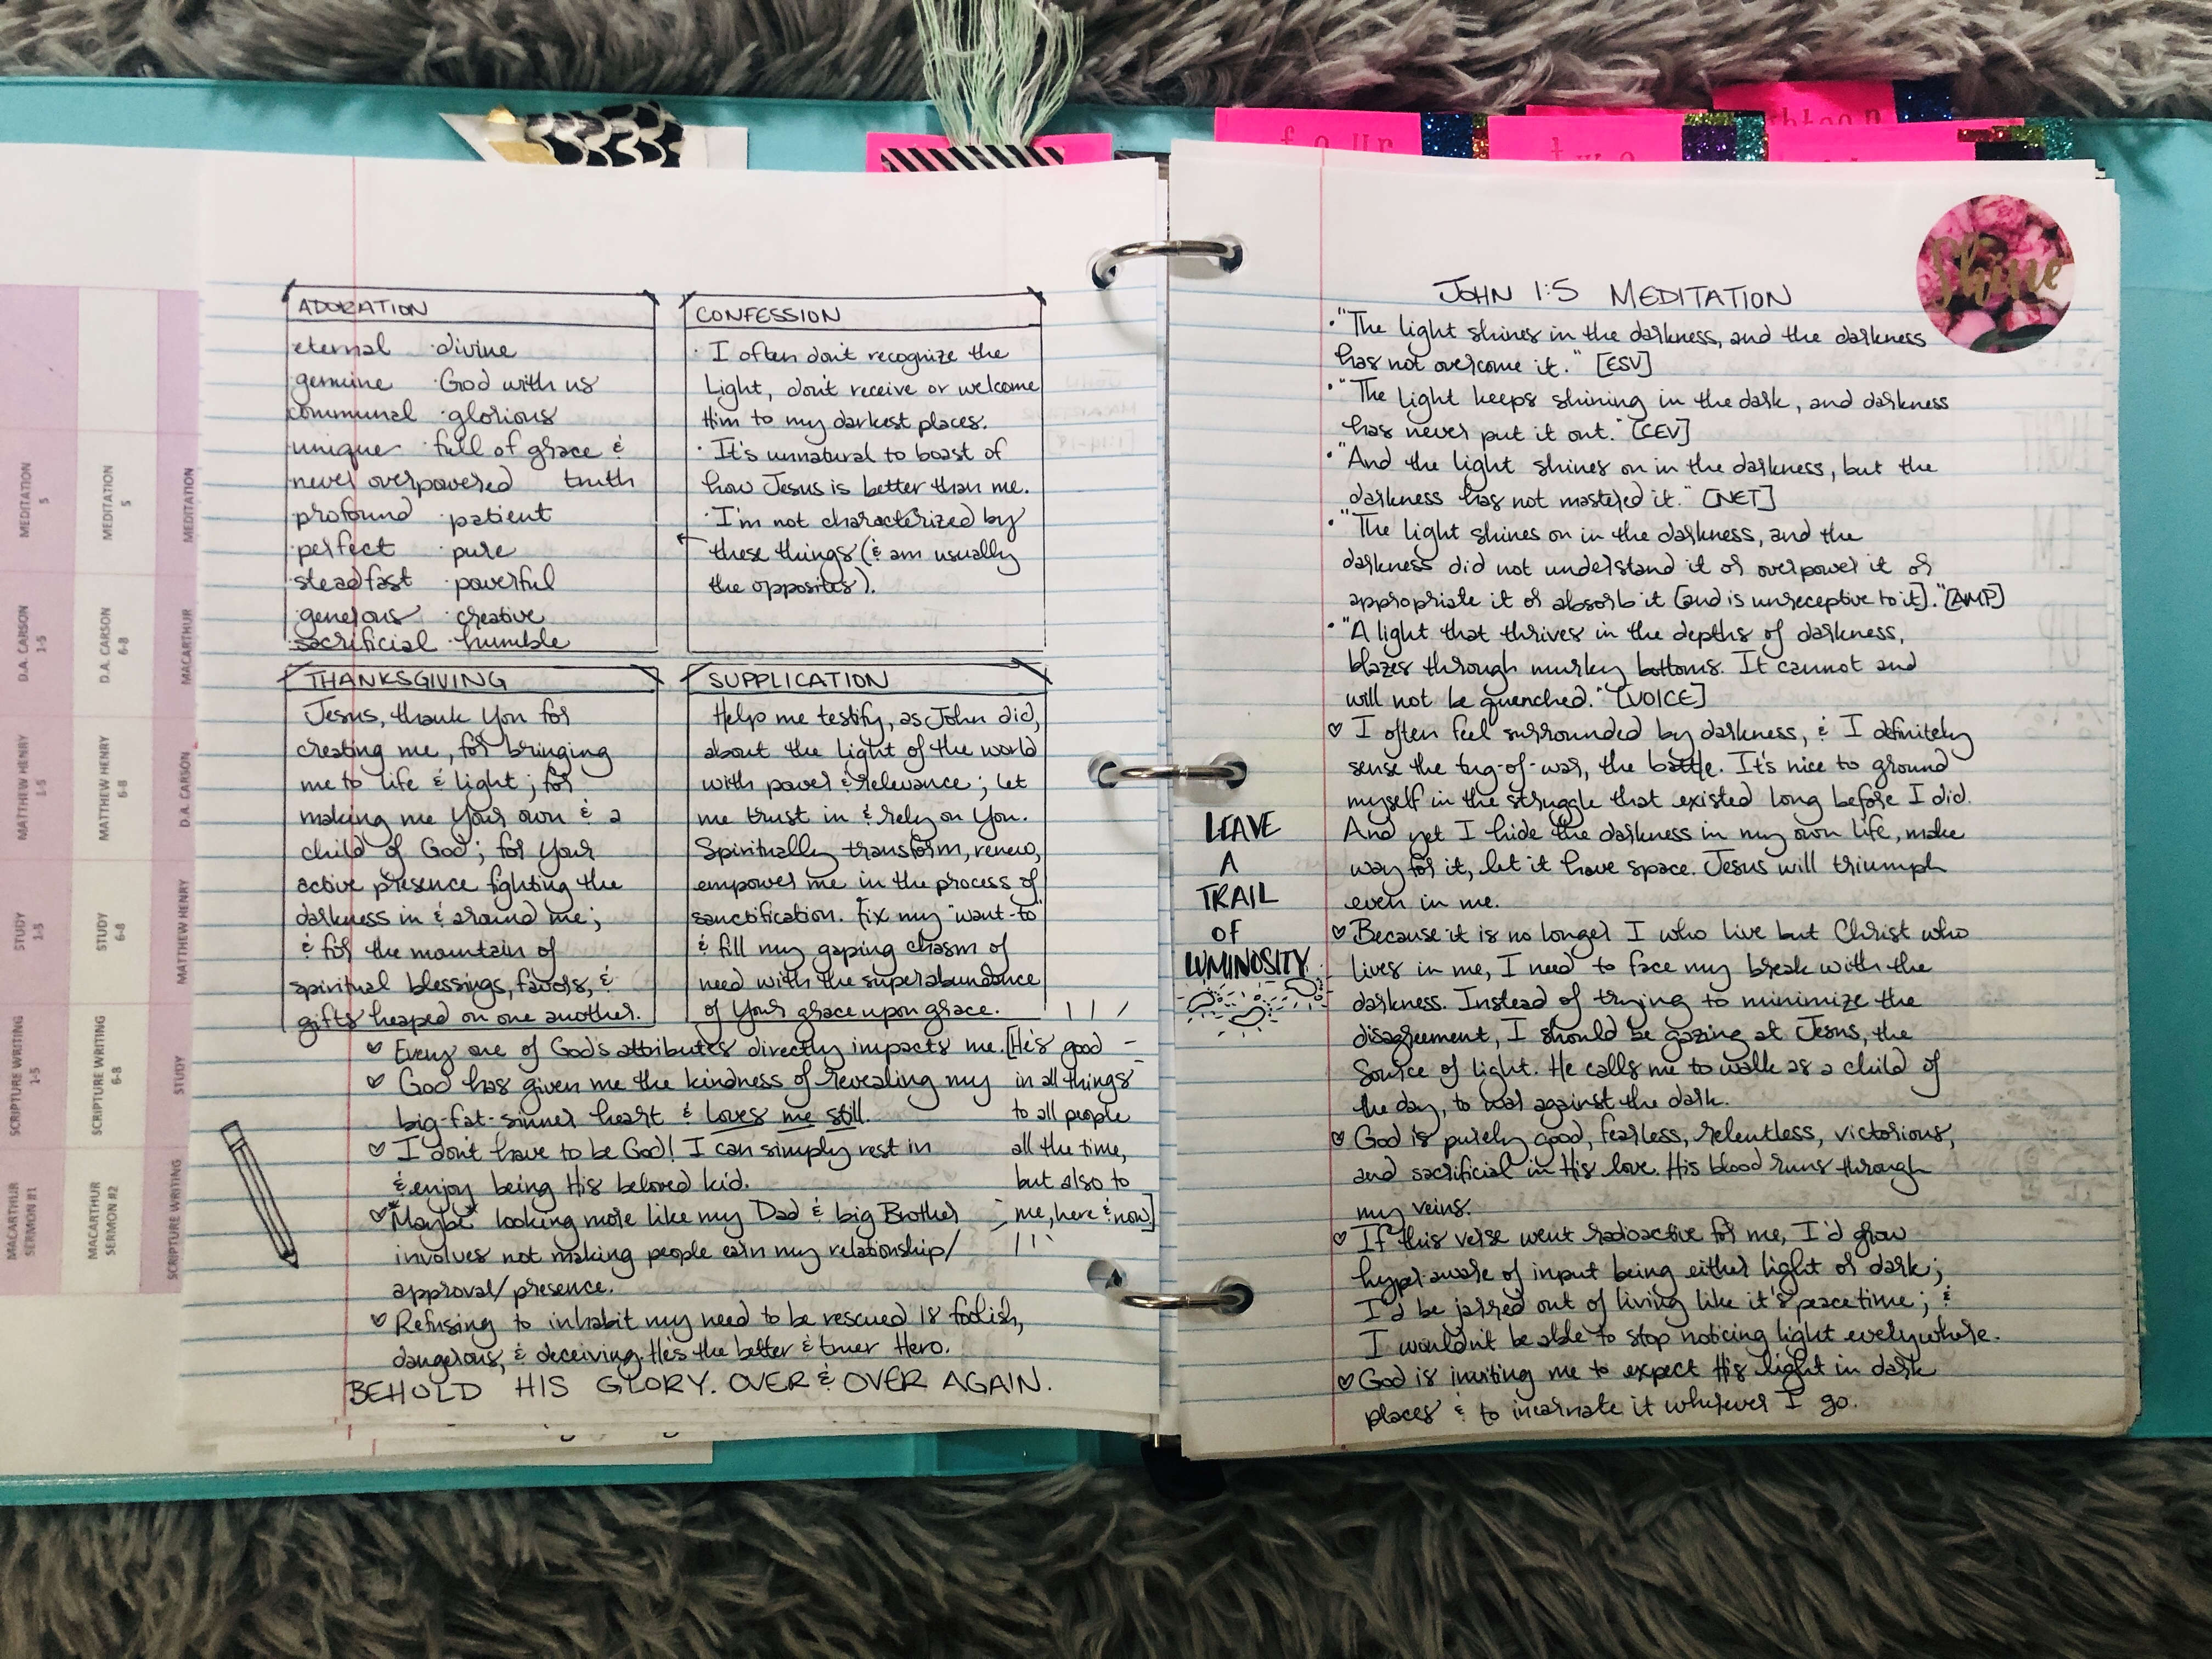 four
two
ADORATION
eternal · divine
genuine · God with us
communal · glorious
unique · full of grace &
never overpowered truth
· profound · patient
· perfect · pure
· steadfast · powerful
· generous · creative
· sacrificial · humble
CONFESSION
· I often don't recognize the
Light, don't receive or welcome
Him to my darkest places.
· It's unnatural to boast of
how Jesus is better than me.
· I'm not characterized by
these things (& am usually
the opposites).
THANKSGIVING
Jesus, thank You for
creating me, for bringing
me to life & light; for
making me Your own & a
child of God; for Your
active presence fighting the
darkness in & around me;
& for the mountain of
spiritual blessings, favors, &
gifts heaped on one another.
SUPPLICATION
Help me testify, as John did,
about the light of the world
with power & relevance; let
me trust in & rely on You.
Spiritually transform, renew,
empower me in the process of
sanctification. Fix my "want-to"
& fill my gaping chasm of
need with the superabundance
of Your grace upon grace.
♡ Every one of God's attributes directly impacts me.
♡ God has given me the kindness of revealing my
big-fat-sinner heart & loves me still.
♡ I don't have to be God! I can simply rest in
& enjoy being His beloved kid.
♡ *Maybe* looking more like my Dad & big Brother
involves not making people earn my relationship/
approval/presence.
♡ Refusing to inhabit my need to be rescued is foolish,
dangerous, & deceiving. He's the better & truer Hero.
BEHOLD HIS GLORY. OVER & OVER AGAIN.
[He's good
in all things
to all people
all the time,
but also to
me, here & now]
MEDITATION
5
MEDITATION
5
MEDITATION
D.A. CARSON
1-5
D.A. CARSON
6-8
MACARTHUR
MATTHEW HENRY
1-5
MATTHEW HENRY
6-8
D.A. CARSON
STUDY
1-5
STUDY
6-8
MATTHEW HENRY
SCRIPTURE WRITING
1-5
SCRIPTURE WRITING
6-8
STUDY
MACARTHUR
SERMON #1
MACARTHUR
SERMON #2
SCRIPTURE WRITING
Shine
JOHN 1:5 MEDITATION
· "The light shines in the darkness, and the darkness
has not overcome it." [ESV]
· "The light keeps shining in the dark, and darkness
has never put it out." [CEV]
· "And the light shines on in the darkness, but the
darkness has not mastered it." [NET]
· "The Light shines on in the darkness, and the
darkness did not understand it or overpower it or
appropriate it or absorb it [and is unreceptive to it]." [AMP]
· "A light that thrives in the depths of darkness,
blazes through murky bottoms. It cannot and
will not be quenched." [VOICE]
♡ I often feel surrounded by darkness, & I definitely
sense the tug-of-war, the battle. It's nice to ground
myself in the struggle that existed long before I did.
And yet I hide the darkness in my own life, make
way for it, let it have space. Jesus will triumph
even in me.
♡ Because it is no longer I who live but Christ who
lives in me, I need to face my break with the
darkness. Instead of trying to minimize the
disagreement, I should be gazing at Jesus, the
Source of light. He calls me to walk as a child of
the day, to war against the dark.
♡ God is purely good, fearless, relentless, victorious,
and sacrificial in His love. His blood runs through
my veins.
♡ If this verse went radioactive for me, I'd grow
hyper-aware of input being either light or dark;
I'd be jarred out of living like it's peacetime; &
I wouldn't be able to stop noticing light everywhere.
♡ God is inviting me to expect His light in dark
places & to incarnate it wherever I go.
LEAVE
A
TRAIL
OF
LUMINOSITY